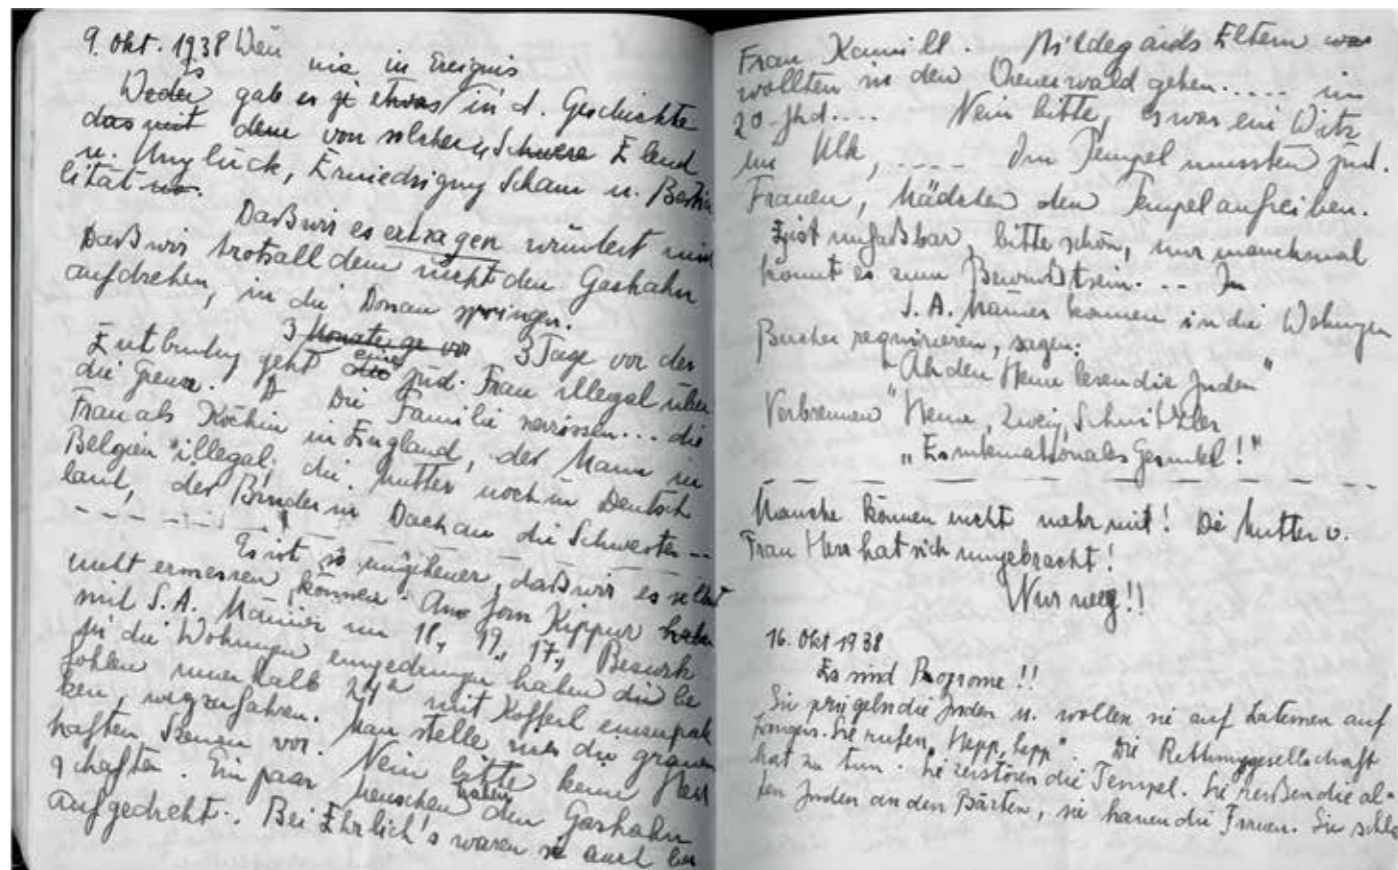 9. Okt. 1938 Wien
Es nie in Ereignis
Weder gab es je etwas in d. Geschichte
das mit dem von solchem Schwere Elend
u. Unglück, Erniedrigung Scham u. Besti
lität
Daß wir es ertragen wundert mich
Daß wir trotzalldem nicht den Gashahn
aufdrehen, in die Donau springen.
3 Monate vor 3 Tage vor der
Entbindung geht die eine jüd. Frau illegal über
die Grenze. Die Familie zerrissen... die
Frau als Köchin in England, der Mann in
Belgien "illegal, die Mutter noch in Deutsch
land, der Bruder in Dachau die Schwester --
Es ist so ungeheuer, daß wir es selbst
nicht ermessen können. Am Jom Kippur haben
mit S.A. Männer im 18., 19., 17., Besirk
in die Wohnungen eingedrungen haben die be
fohlen innerhalb 24h mit Kofferl einzupak
ken, wegzufahren. Man stelle sich die grauen
haften Szenen vor. Nein bitte keine
schaften. Ein paar Menschen haben den Gashahn
aufgedreht.. Bei Ehrlich's waren sie auch bei
Frau Kamill. Hildegards Eltern
wollten in den Wienerwald gehen..... im
20. Jhd.... Nein bitte, es war ein Witz
ein Ulk, ---- Im Tempel mussten jüd.
Frauen, Mädchen den Tempel aufreiben.
Es ist unfaßbar, bitte schön, nur manchmal
kommt es zum Bewußtsein. -- In
S.A. Männer kommen in die Wohnungen
Bücher requirieren, sagen:
"Ah den Heine lesen die Juden"
Verbrennen "Heine, Zweig, Schnitzler
"Internationales Gesindel!"
Manche können nicht mehr mit! Die Mutter v.
Frau Herr hat sich umgebracht!
Nur weg!!
16. Okt 1938
Es sind Progrome!!
Sie prügeln die Juden u. wollen sie auf Laternen auf
hängen. Sie rufen "Hepp, hepp". Die Rettungsgesellschaft
hat zu tun. Sie zerstören die Tempel. Sie reißen die al-
ten Juden an den Bärten, sie hauen die Frauen. Sie schla